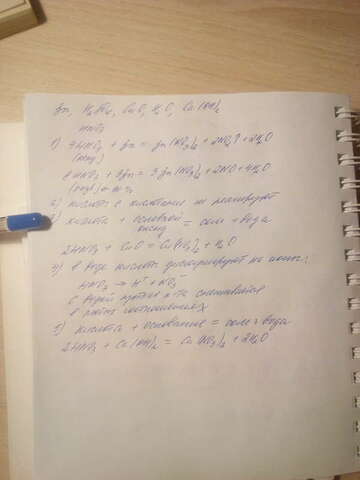 Zn, H₂SO₄, CuO, H₂O, Ca(OH)₂
HNO₃
1) 4HNO₃ + Zn = Zn(NO₃)₂ + 2NO₂↑ + 2H₂O
(конц)
8HNO₃ + 3Zn = 3Zn(NO₃)₂ + 2NO + 4H₂O
2) кислота с кислотами не реагируют
3) кислота + основной оксид = соль + вода
2HNO₃ + CuO = Cu(NO₃)₂ + H₂O
4) в воде кислоты диссоциируют на ионы:
HNO₃ → H⁺ + NO₃⁻
с водой азотная к-та смешивается
в любых соотношениях
5) кислота + основание = соль + вода
2HNO₃ + Ca(OH)₂ = Ca(NO₃)₂ + 2H₂O